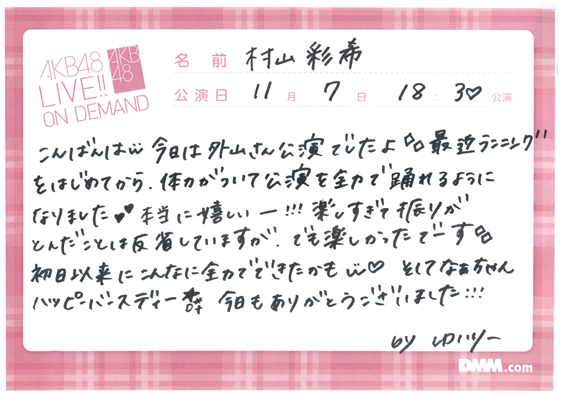 AKB48
LIVE!!
ON DEMAND
AKB
48
名前 村山彩希
公演日 11月 7日 18:30公演
こんばんは 今日は外山さん公演でしたよ 最近ランニング
をはじめてから、体力がついて公演を全力で踊れるように
なりました 本当に嬉しいー!!! 楽しすぎて振りが
とんだことは反省していますが、でも楽しかったでーす
初日以来にこんなに全力でできたかも そしてなぁちゃん
ハッピーバースディー 今日もありがとうございました!!!
by ゆいりー
DMM.com